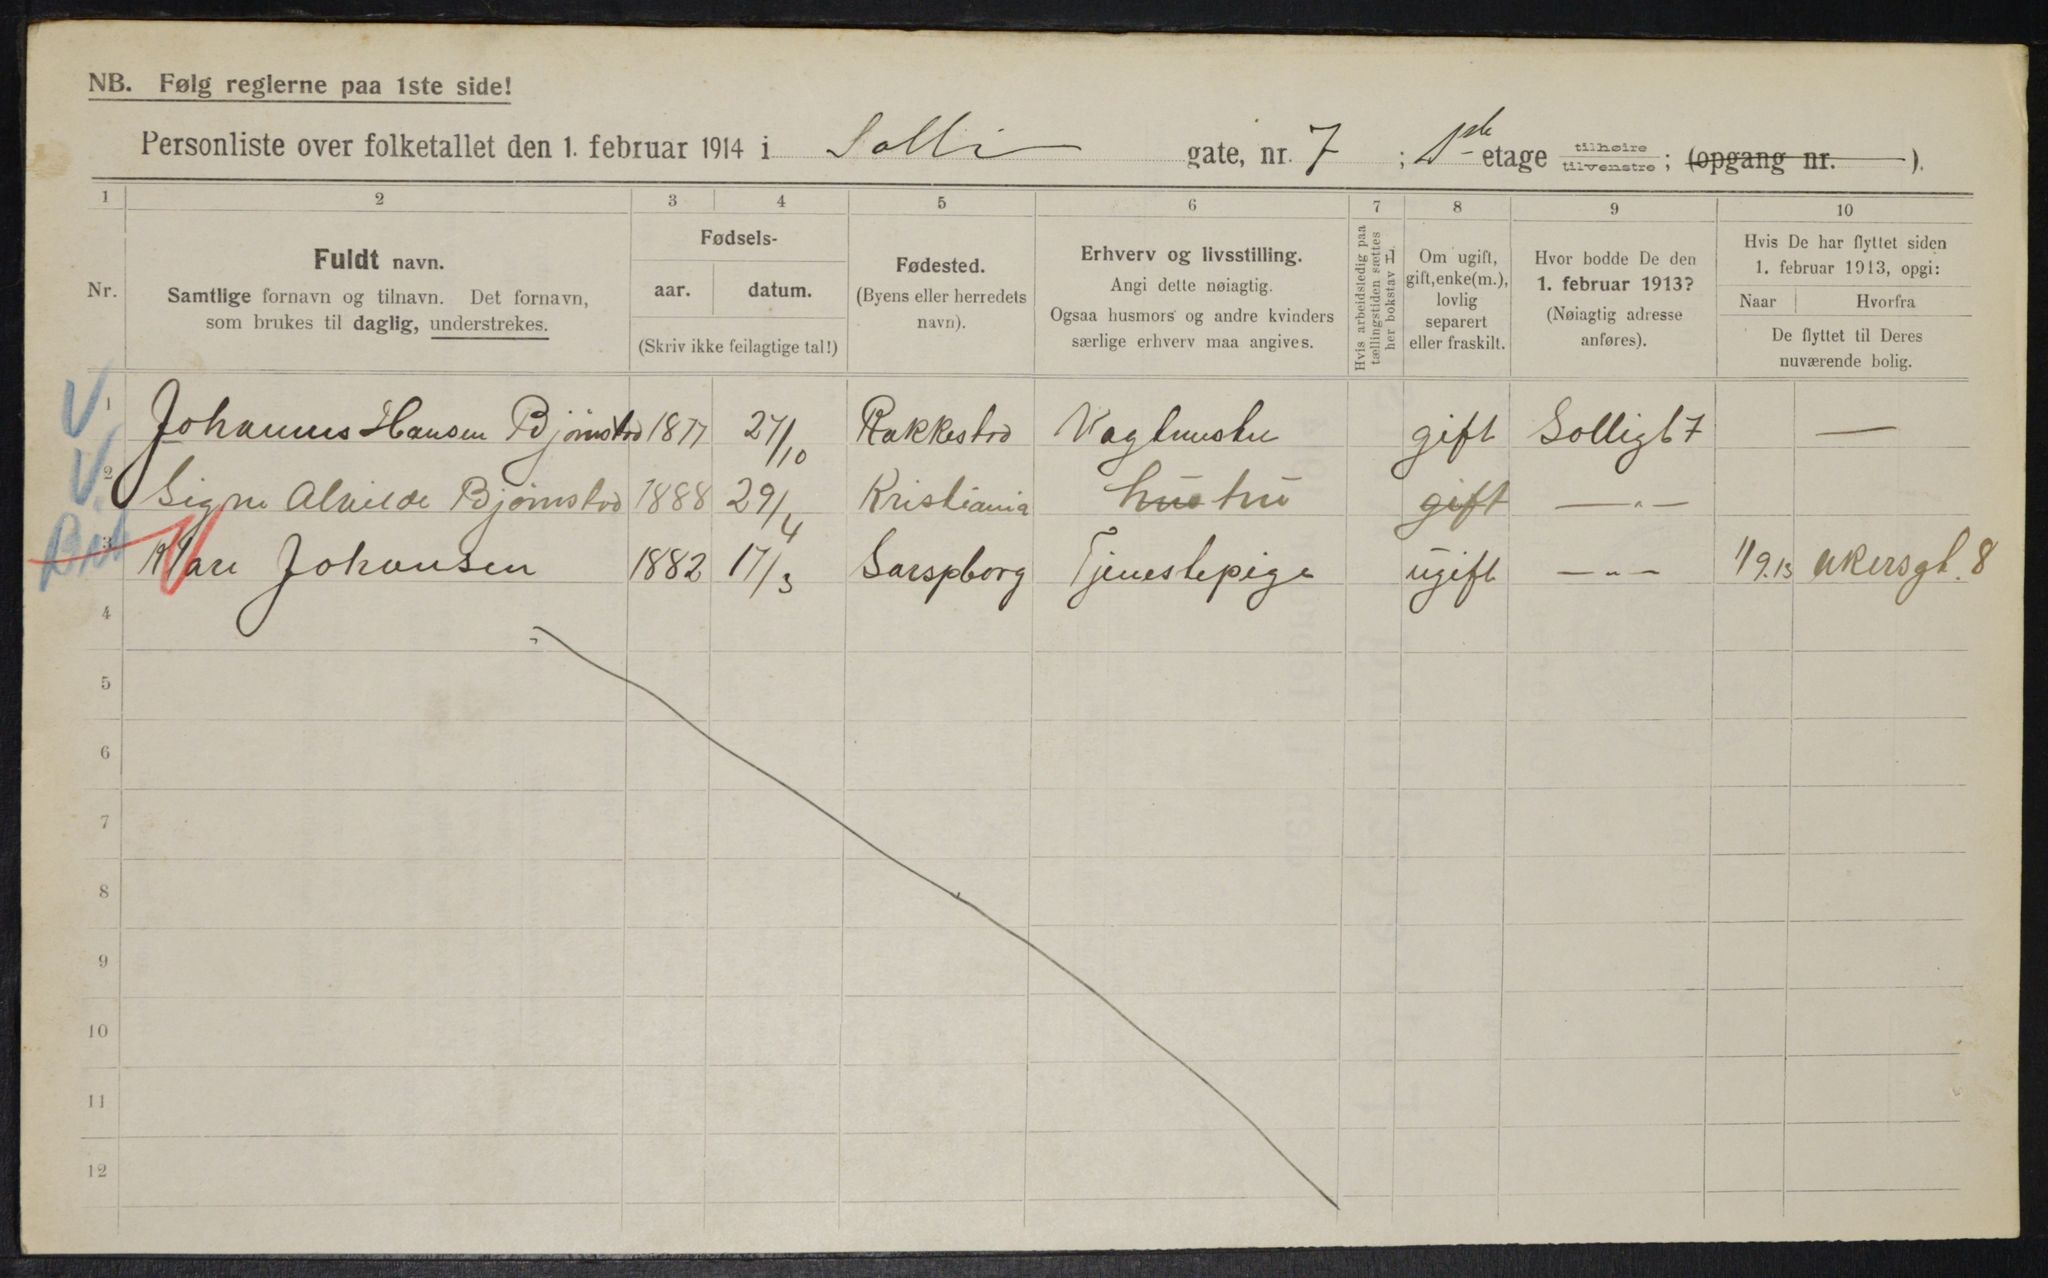 NB. Følg reglerne paa 1ste side!
Personliste over folketallet den 1. februar 1914 i Solli gate, nr. 7 ; 1ste etage tilhøire tilvenstre ; (opgang nr. ).
1 2 3 4 5 6 7 8 9 10
Nr.
Fuldt navn.
Samtlige fornavn og tilnavn. Det fornavn,
som brukes til daglig, understrekes.
Fødsels-
aar. datum.
(Skriv ikke feilagtige tal!)
Fødested.
(Byens eller herredets
navn).
Erhverv og livsstilling.
Angi dette nøiagtig.
Ogsaa husmors og andre kvinders
særlige erhverv maa angives.
Hvis arbeidsledig paa
tællingstiden sættes
her bokstav L.
Om ugift,
gift, enke(m.),
lovlig
separert
eller fraskilt.
Hvor bodde De den
1. februar 1913?
(Nøiagtig adresse
anføres).
Hvis De har flyttet siden
1. februar 1913, opgi:
Naar Hvorfra
De flyttet til Deres
nuværende bolig.
V 1 Johannes Hansen Bjørnstad 1877 27/10 Rakkestad gift Solligt 7 —
V 2 Signe Alvilde Bjørnstad 1888 29/4 Kristiania hustru gift — " —
3 Johansen 1882 17/3 Sarpsborg Tjenestepige ugift — " — 1/9.13 Akersgt. 8
4
5
6
7
8
9
10
11
12